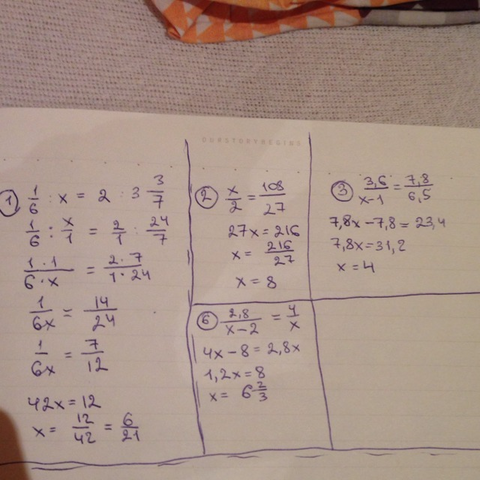 ① 1/6 : x = 2 : 3 3/7
1/6 : x/1 = 2/1 : 24/7
1·1/6·x = 2·7/1·24
1/6x = 14/24
1/6x = 7/12
42x = 12
x = 12/42 = 6/21
② x/2 = 108/27
27x = 216
x = 216/27
x = 8
③ 3,6/x-1 = 7,8/6,5
7,8x - 7,8 = 23,4
7,8x = 31,2
x = 4
⑥ 2,8/x-2 = 4/x
4x - 8 = 2,8x
1,2x = 8
x = 6 2/3